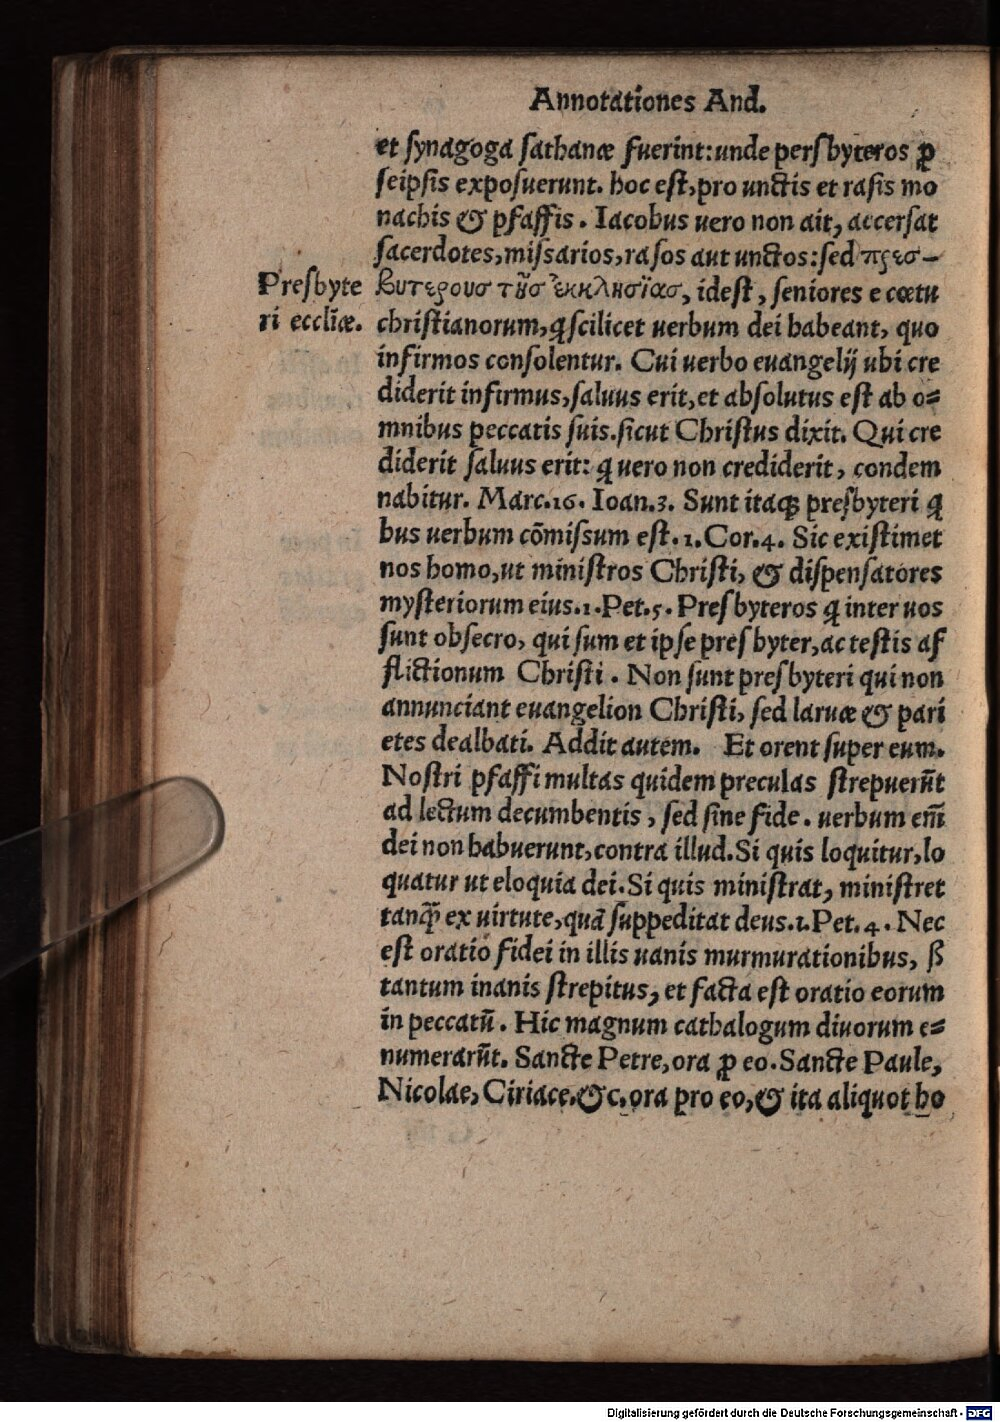 Annotationes And.
et ſynagoga ſathanæ fuerint: unde perſbyteros ꝓ
ſeipſis expoſuerunt. hoc eſt, pro unctis et raſis mo
nachis & pfaffis. Iacobus uero non ait, accerſat
ſacerdotes, miſsarios, raſos aut unctos: ſed πρεσ-
Preſbyte
ri eccl̃iæ.
βυτερουσ τῆσ ἐκκλησίασ, id eſt, ſeniores e cœtu
chriſtianorum, ꝗ ſcilicet uerbum dei habeant, quo
infirmos conſolentur. Cui uerbo euangelij ubi cre
diderit infirmus, ſaluus erit, et abſolutus eſt ab o=
mnibus peccatis ſuis. ſicut Chriſtus dixit. Qui cre
diderit ſaluus erit: ꝗ uero non crediderit, condem
nabitur. Marc. 16. Ioan. 3. Sunt itaqꝫ preſbyteri ꝗ
bus uerbum cõmiſsum eſt. 1. Cor. 4. Sic exiſtimet
nos homo, ut miniſtros Chriſti, & diſpenſatores
myſteriorum eius. 1. Pet. 5. Preſbyteros ꝗ inter uos
ſunt obſecro, qui ſum et ipſe preſbyter, ac teſtis af
flictionum Chriſti. Non ſunt preſbyteri qui non
annunciant euangelion Chriſti, ſed laruæ & pari
etes dealbati. Addit autem. Et orent ſuper eum.
Noſtri pfaffi multas quidem preculas ſtrepuerũt
ad lectum decumbentis, ſed ſine fide. uerbum em̃
dei non habuerunt, contra illud. Si quis loquitur, lo
quatur ut eloquia dei. Si quis miniſtrat, miniſtret
tanꝗ̃ ex uirtute, quã ſuppeditat deus. 1. Pet. 4. Nec
eſt oratio fidei in illis uanis murmurationibus, ß
tantum inanis ſtrepitus, et facta eſt oratio eorum
in peccatũ. Hic magnum cathalogum diuorum e=
numerarũt. Sancte Petre, ora ꝓ eo. Sancte Paule,
Nicolae, Ciriace. &c. ora pro eo, & ita aliquot ho
Digitalisierung gefördert durch die Deutsche Forschungsgemeinschaft - DFG